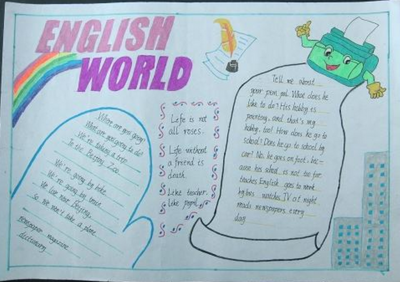 ENGLISH
WORLD
Where are you going?
What are you going to do?
We're taking a trip
To the Beijing Zoo.
We're going by bike.
We're going by
We live near Beijing
So we won't take a plane
newspaper magazine
dictionary
Life is not
all roses.
Life without
a friend is
death.
Like teacher,
like pupil.
Tell me about
your pen pal. What does he
like to do? His hobby is
painting, and that's my
hobby, too! How does he go to
school? Does he go to school by
car? No, he goes on foot, bec-
ause his school is not too far
teaches English goes to work
by bus watches TV at night
reads newspapers every
day